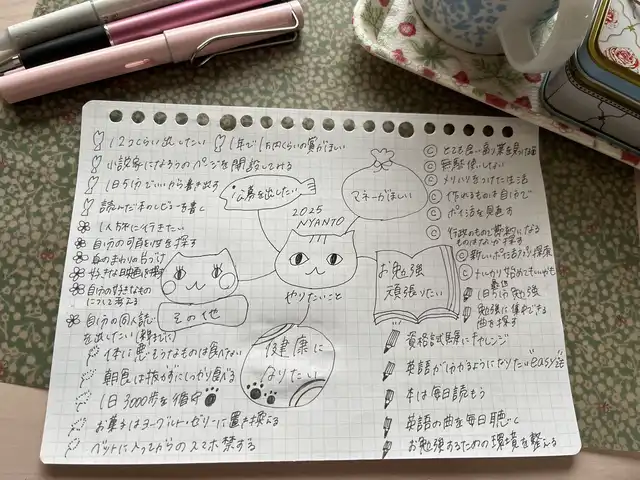 12つくらい出したい
1年で1万円くらいの賞がほしい
小説家になろうのページを開設してみる
1日5分でいいから書き出す
読んだ本のレビューを書く
1人旅に行きたい
自分の可能性を探す
身のまわりの片づけ
好きな映画
自分の好きなもの
について考える
自分の同人誌
を出したい
体に悪そうなものは食べない
朝食は抜かずにしっかり食べる
1日3000歩を循守
お菓子はヨーグルト・ゼリーに置き換える
ベットに入ってからのスマホ禁する
公募を出したい
2025
NYANTO
やりたいこと
その他
健康に
なりたい
マネーがほしい
お勉強
頑張りたい
無駄使いしない
メリハリをつけた生活
作れるものは自分で
ポイ活を見直す
行政のもので節約になる
ものはないか探す
新しいポイ活アプリ探索
1日5分勉強
勉強に集中できる
曲を探す
資格試験にチャレンジ
英語がわかるようになりたい easy
本は毎日読もう
英語の曲を毎日聴く
お勉強するための環境を整える